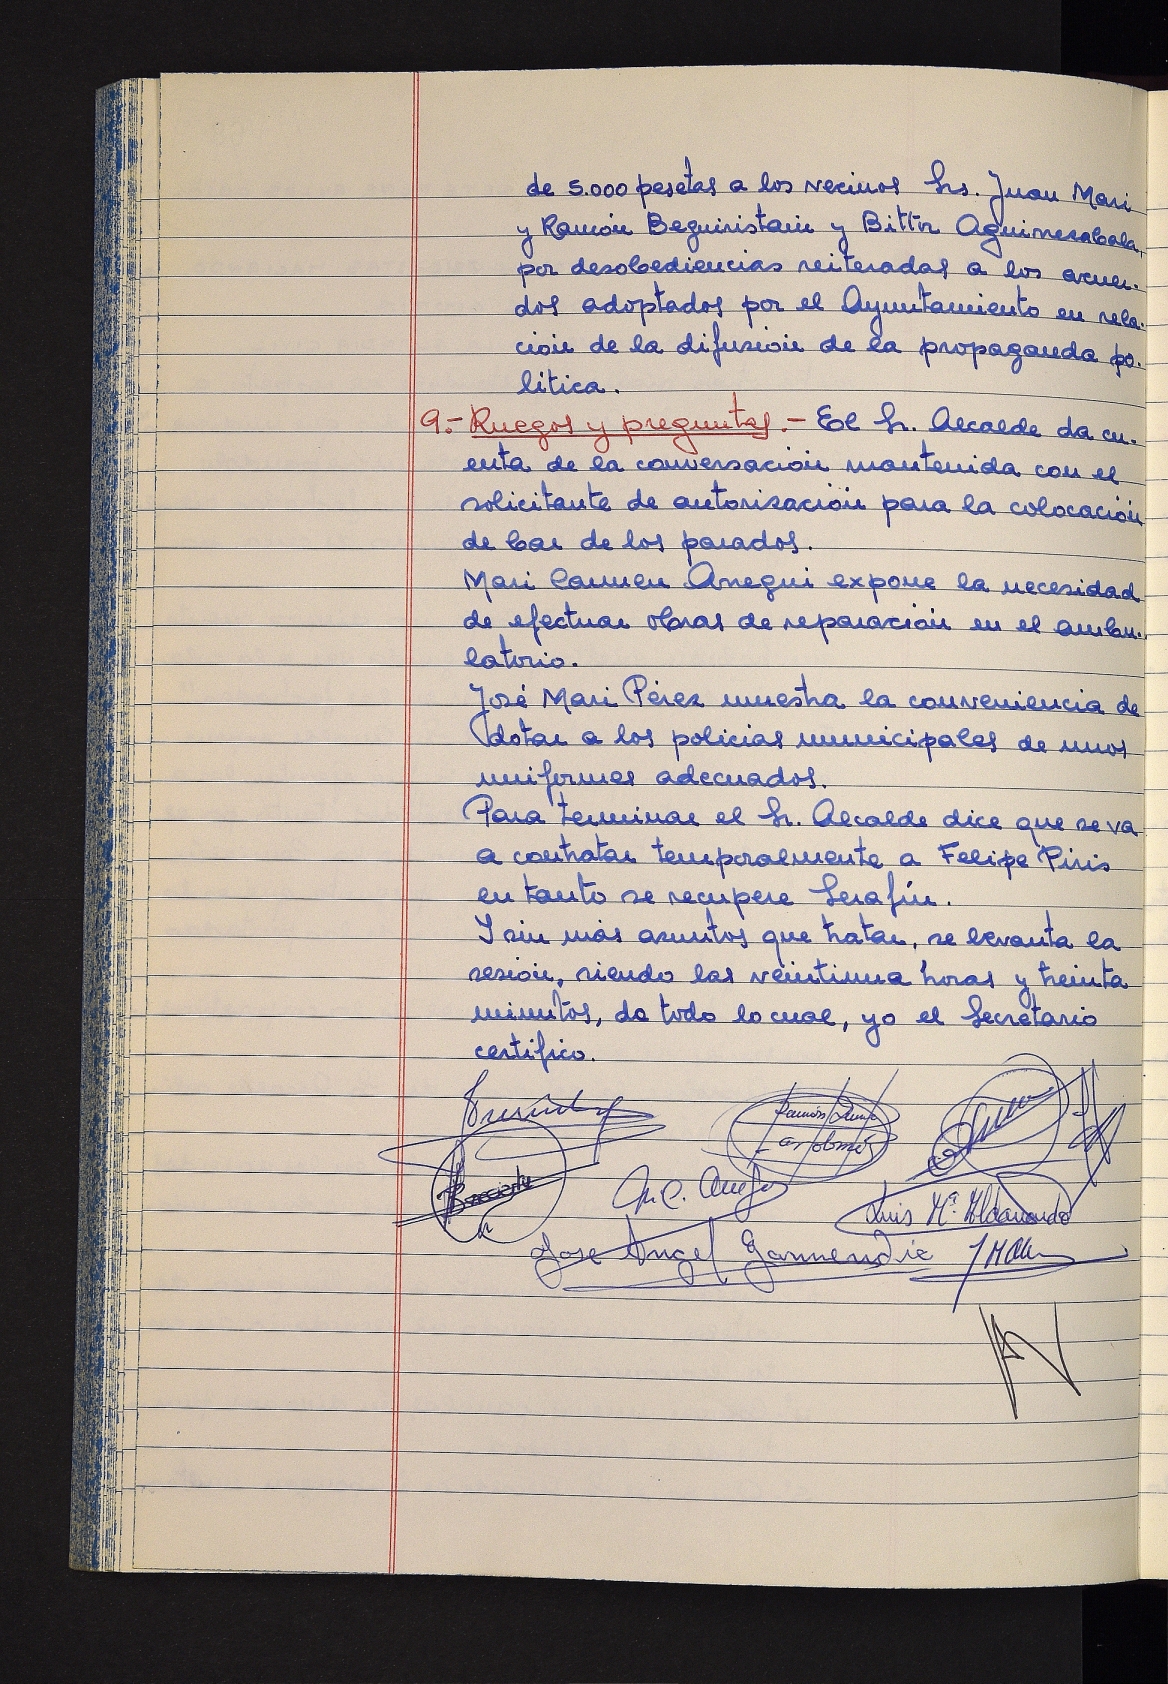 de 5.000 pesetas a los vecinos Srs. Juan Mari
y Ramón Beguiristain y Bittor Aguirrezabala,
por desobediencias reiteradas a los acuer-
dos adoptados por el Ayuntamiento en rela-
ción de la difusión de la propaganda po-
lítica.
9.- Ruegos y preguntas.- El Sr. Alcalde da cu-
enta de la conversación mantenida con el
solicitante de autorización para la colocación
de bar de los parados.
Mari Carmen Aregui expone la necesidad
de efectuar obras de reparación en el ambu-
latorio.
José Mari Pérez muestra la conveniencia de
dotar a los policias municipales de unos
uniformes adecuados.
Para terminar el Sr. Alcalde dice que se va
a contratar temporalmente a Felipe Piris
en tanto se recupere Serafín.
Y sin más asuntos que tratar, se levanta la
sesión, siendo las veintiuna horas y treinta
minutos, da todo lo cual, yo el Secretario
certifico.
Luis Mª Aldanondo
Jose Angel Garmendia